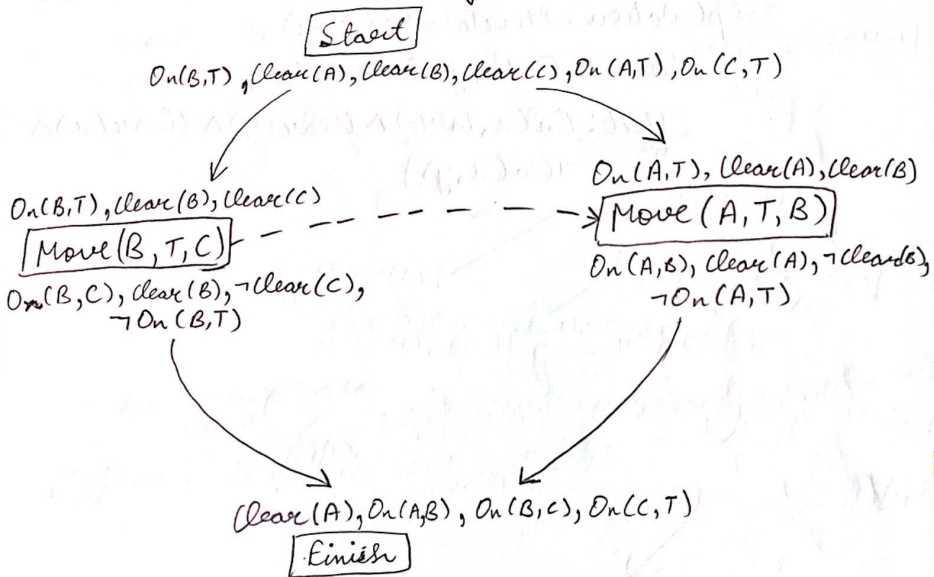 Start
On(B,T), Clear(A), Clear(B), Clear(C), On(A,T), On(C,T)
On(B,T), Clear(B), Clear(C)
Move(B,T,C)
On(B,C), Clear(B), ¬Clear(C),
¬On(B,T)
On(A,T), Clear(A), Clear(B)
Move(A,T,B)
On(A,B), Clear(A), ¬Clear(B),
¬On(A,T)
Clear(A), On(A,B), On(B,C), On(C,T)
Finish